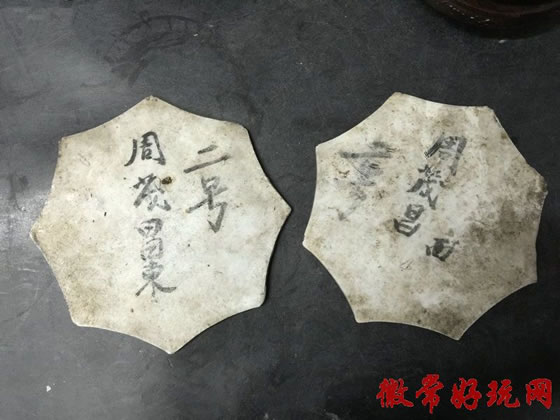 二号
周茂昌東
周茂昌西
徽常好玩网